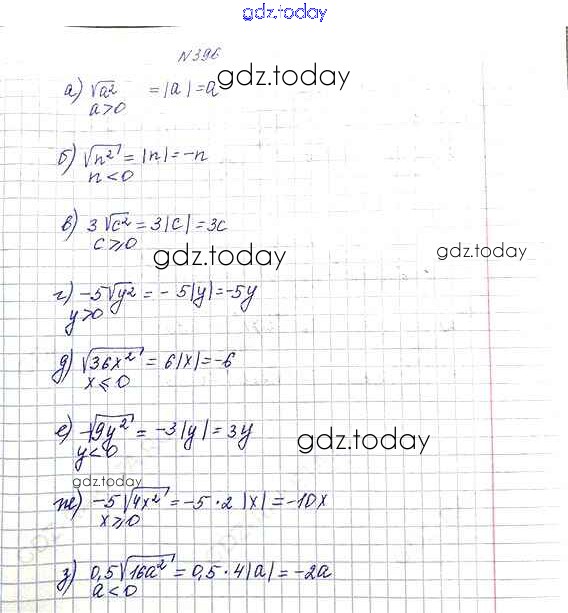 gdz.today
N396
а) √a² = |a| = a
a>0
gdz.today
б) √n² = |n| = -n
n<0
в) 3√c² = 3|c| = 3c
c⩾0
gdz.today
gdz.today
г) -5√y² = -5|y| = -5y
y>0
д) √36x² = 6|x| = -6
x⩽0
е) -√9y² = -3|y| = 3y
y<0
gdz.today
gdz.today
ж) -5√4x² = -5·2|x| = -10x
x⩾0
з) 0,5√16a² = 0,5·4|a| = -2a
a<0